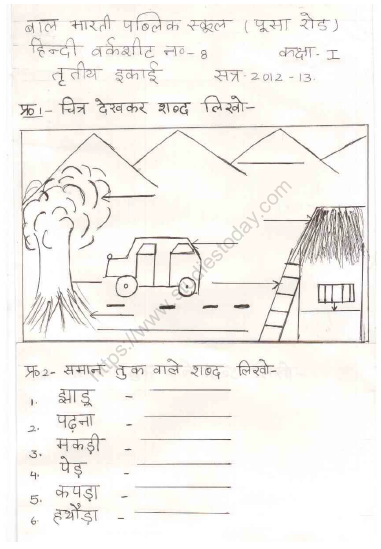 बाल भारती पब्लिक स्कूल ( पूसा रोड)
हिन्दी वर्कशीट न०- 8 कक्षा- I
तृतीय इकाई सत्र- 2012-13.
प्र०1- चित्र देखकर शब्द लिखो-
https://www.studiestoday.com
प्र०2- समान तुक वाले शब्द लिखो-
1. झाडू -
2. पढ़ना -
3. मकड़ी -
4. पेड़ -
5. कपड़ा -
6. हथौड़ा -